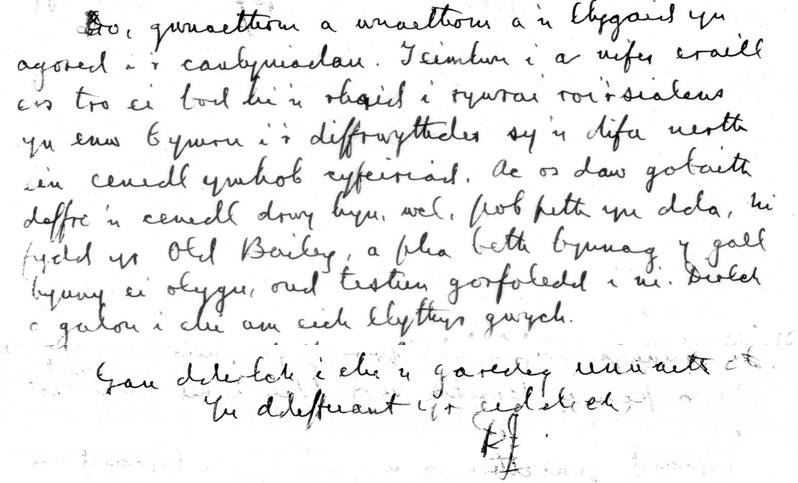 Do, gwnaethom a wnaethom a'n llygaid yn
agored i'r canlyniadau. Teimlwn i a nifer eraill
ers tro ei bod hi'n rhaid i rywrai roi'r sialens
yn enw Cymru i'r diffrwythder sy'n difa nerth
ein cenedl ymhob cyfeiriad. Ac os daw gobaith
deffro'n cenedl drwy hyn, wel, pob peth yn dda, ni
fydd yr Old Bailey, a pha beth bynnag y gall
hynny ei olygu, ond testun gorfoledd i ni. Diolch
o galon i chi am eich llythyr gwych.
Gan ddiolch i chi'n garedig unwaith eto
Yn ddiffuant yr eiddoch